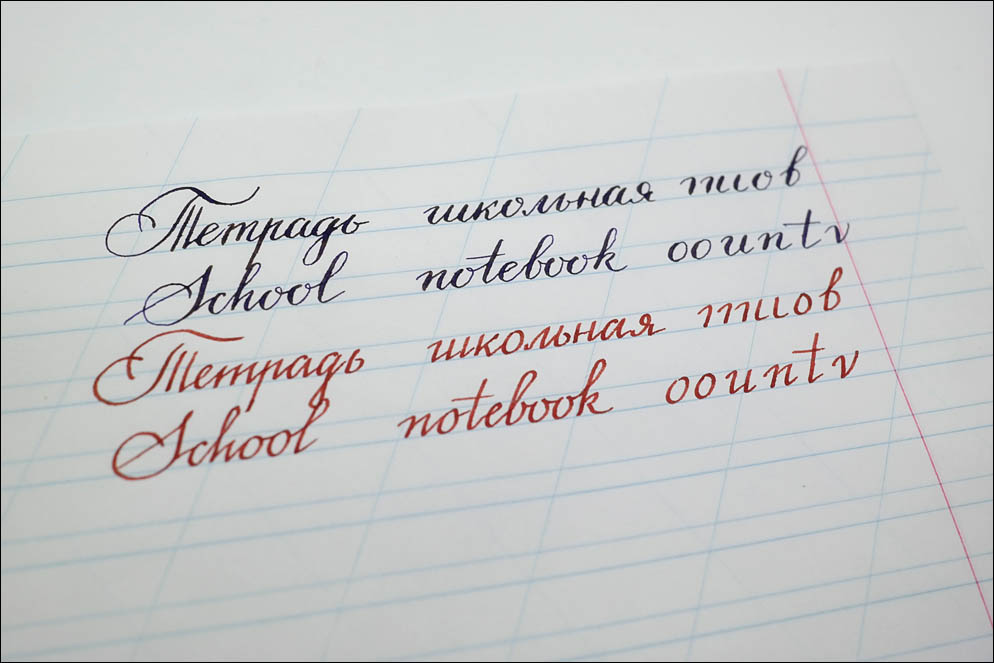 Тетрадь школьная тиов
School notebook oountv
Тетрадь школьная тиов
School notebook oountv